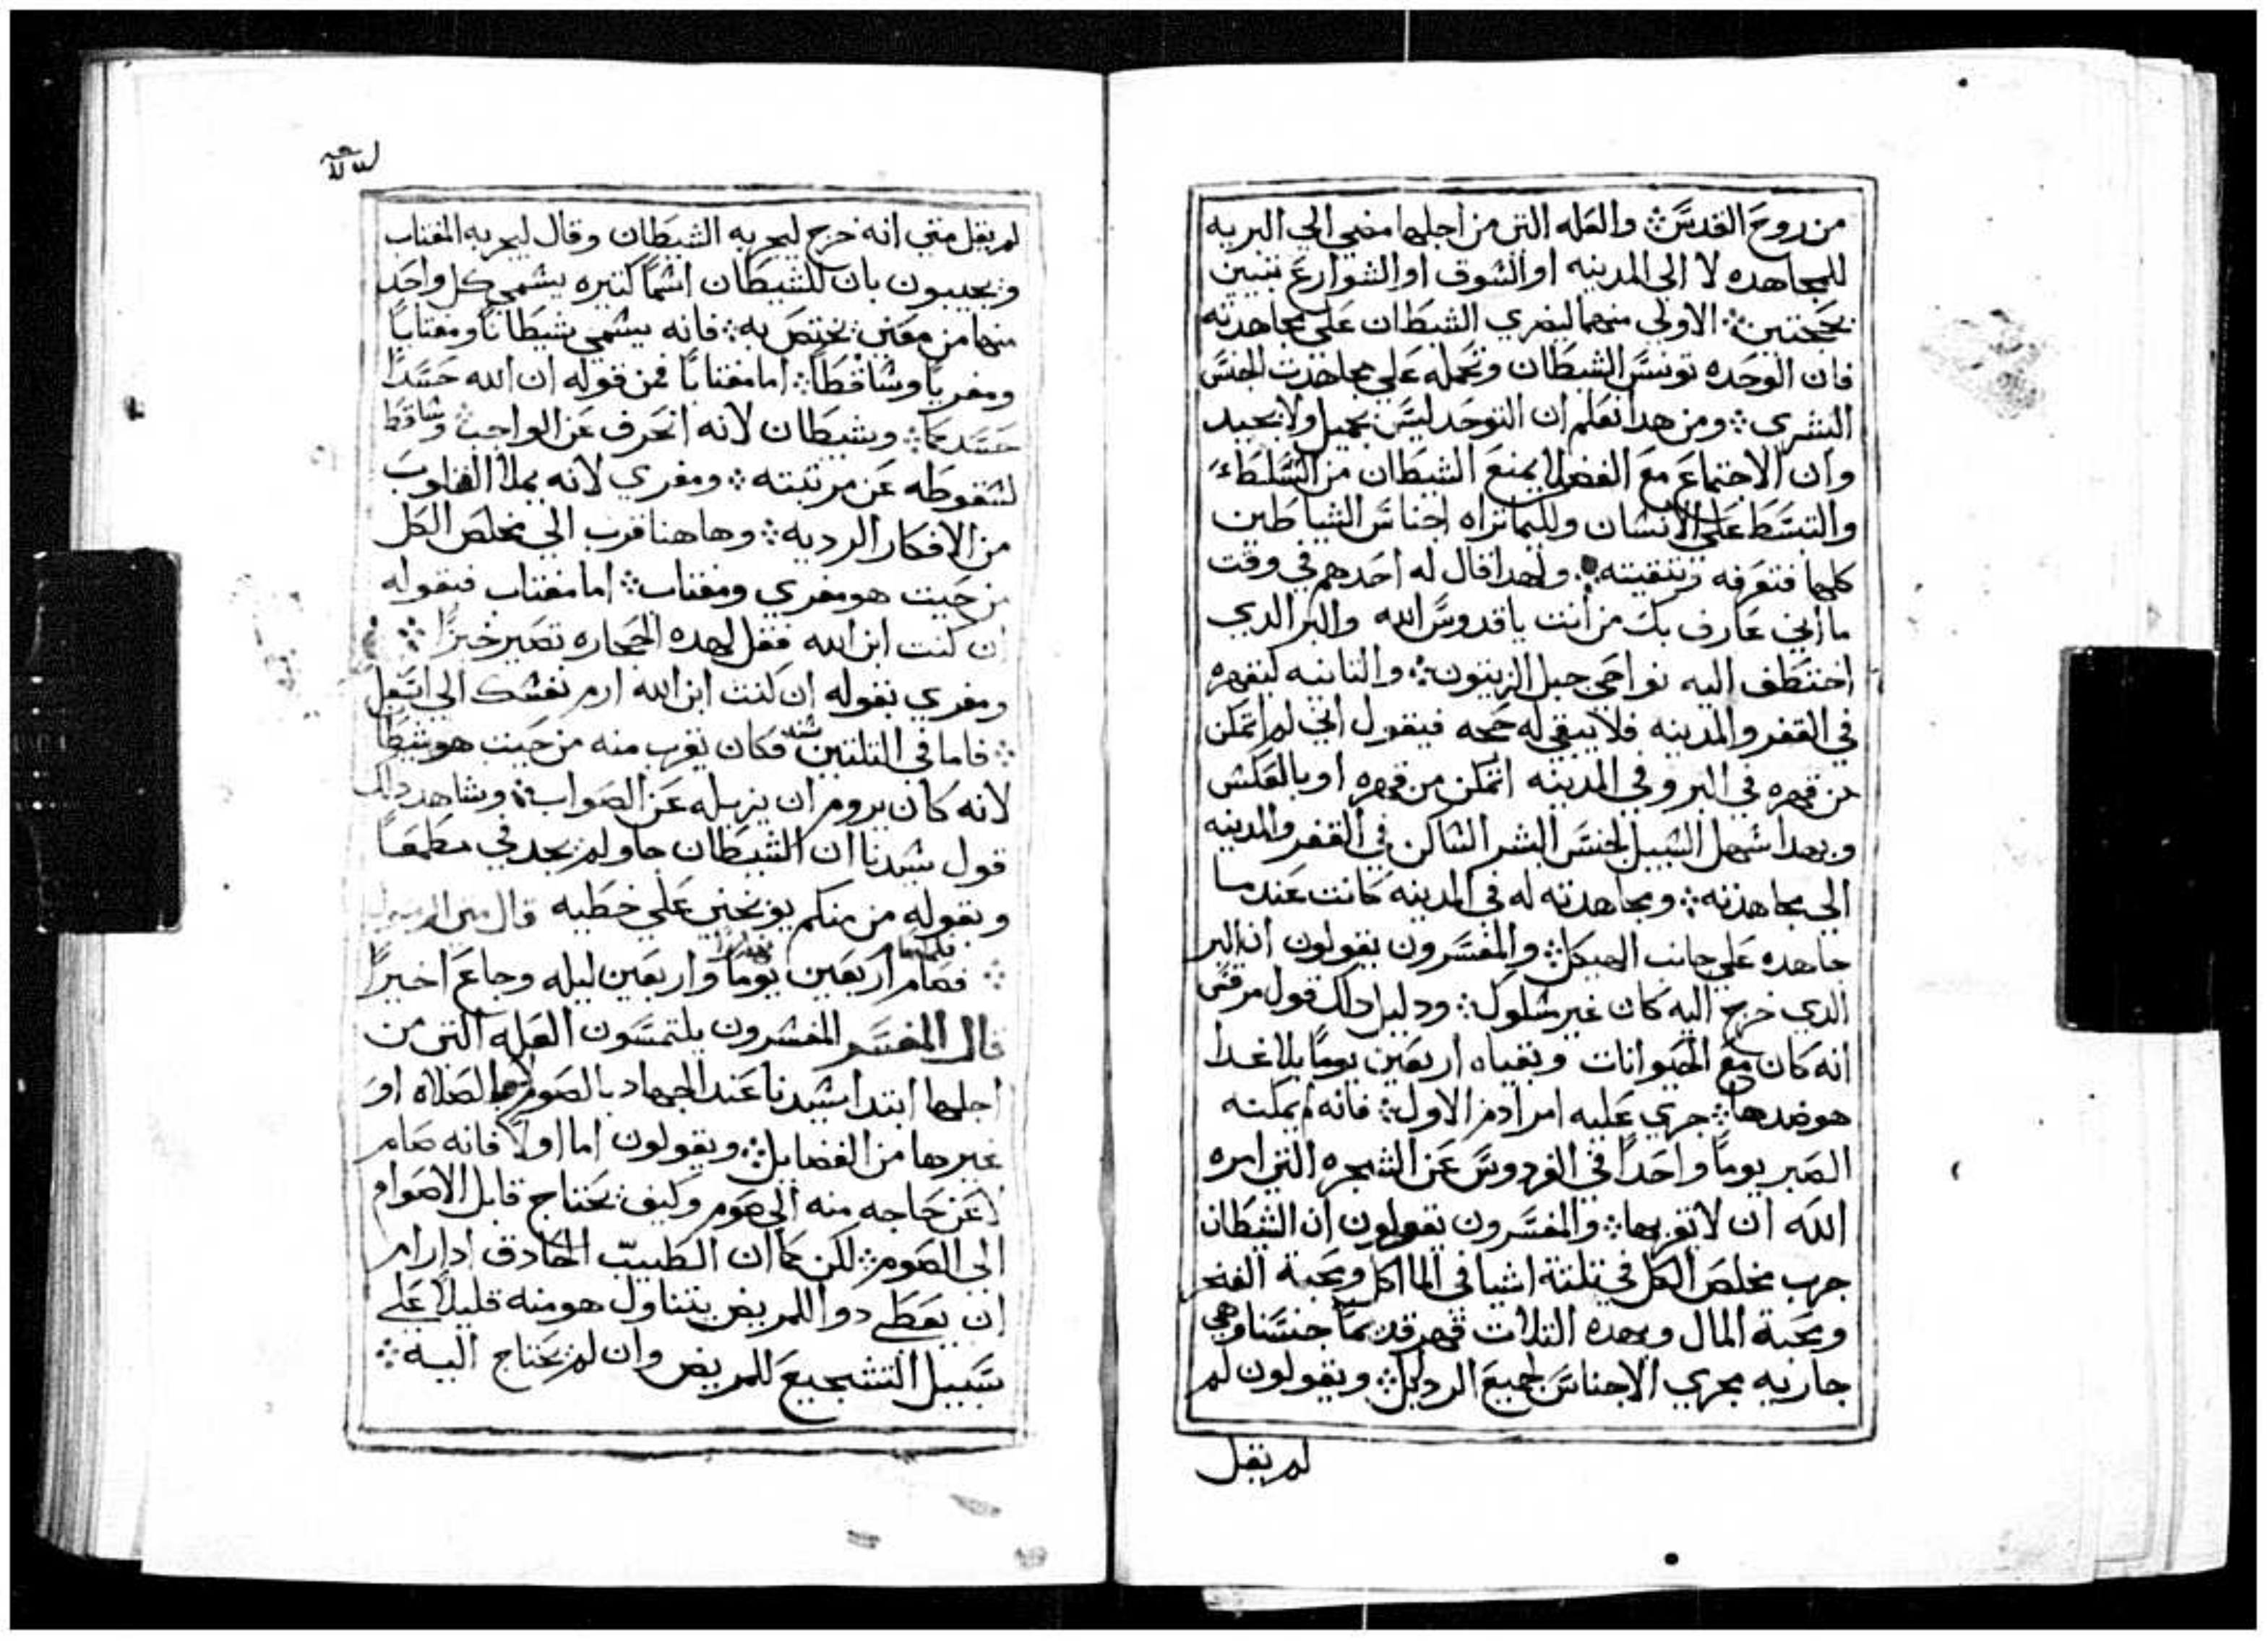 من روح القدس ؞ والعله التي من اجلها مضي الي البريه
للمجاهده لا الي المدينه او السوق او الشوارع تتبين
بحجتين ؞ الاولي منهما ليضري الشيطان علي مجاهدته
فان الوحده تونس الشيطان وتحمله علي مجاهدت الجنس
البشري ؞ ومن هدا نعلم ان التوحد ليس بجميل ولا بجيد
وان الاجتماع مع الفضلا يمنع الشيطان من التسلط
والتبسط علي الانسان وليما تراه اجناس الشياطين
كلها فتعرفه وتتقيته ولهدا قال له احدهم في وقت
ما اني عارف بك من انت يا قدوس الله والبر الدي
اختطف اليه نواحي جبل الزيتون ؞ والتانيه ليقهره
في القفر والمدينه فلا يبقي له حجه فيقول اني لم اتمكن
من قهره في البر وفي المدينه اتمكن من قهره او بالعكس
وبهدا سهل السبيل لجنس البشر الساكن في القفر والمدينه
الي مجاهدته ؞ ومجاهدته له في المدينه كانت عندما
جاهده علي جانب الهيكل ؞ والمفسرون يقولون ان البر
الدي خرج اليه كان غير سلوك ؞ ودليل دلك قول مرقس
انه كان مع الحيوانات وبقياه اربعين يوماً بلا غدا
هو ضدها ؞ جري عليه امر ادم الاول ؞ فانه لم يمكنه
الصبر يوماً واحداً في الفردوس عن الشجره التي امره
الله ان لا تقربها ؞ والمفسرون يقولون ان الشيطان
جرب مخلص الكل في تلتة اشيا في الماكل ومحبة الفخر
ومحبة المال وبهده التلات قهر قديماً جنسنا وهي
جاريه مجري الاجناس لجميع الردايل ؞ ويقولون لم
لم يقل
لم يقل متي انه خرج ليجربه الشيطان وقال ليجربه المغتاب
ويجيبون بان للشيطان اسماً كتيره يسمي كل واحد
منها من معني يختص به ؞ فانه يسمي شيطاناً ومغتاباً
ومغرياً وساقطاً ؞ اما مغتاباً فمن قوله ان الله حسداً
حسدكما ؞ وشيطان لانه انحرف عن الواجب ؞ وساقط
لسقوطه عن مرتبته ؞ ومغري لانه يملا القلوب
من الافكار الرديه ؞ وهاهنا قرب الي مخلص الكل
من حيت هو مغري ومغتاب ؞ اما مغتاب فبقوله
ان كنت ابن الله فقل لهده الحجاره تصير خبزاً ؞
ومغري بقوله ان كنت ابن الله ارم نفسك الي اسفل
؞ فاما في التلتين سنه فكان يقرب منه من حيت هو شيطا
لانه كان يروم ان يزيله عن الصواب ؞ وشاهد دلك
قول سيدنا ان الشيطان جا ولم يجد في مطمعاً
وبقوله من منكم يوبخني علي خطيه قال متي
؞ فصام اربعين يوماً واربعين ليله وجاع اخيراً
قال المفسر المفسرون يلتمسون العله التي من
اجلها ابتدا سيدنا عند الجهاد بالصوم لا بالصلاه او
غيرها من الفضايل ؞ ويقولون اما اولاً فانه صام
لا عن حاجه منه الي صوم وكيف يحتاج قابل الاصوام
الي الصوم ؞ لكن كما ان الطبيب الحادق ادا رام
ان يعطي دوا للمريض يتناول هو منه قليلاً علي
سبيل التشجيع للمريض وان لم يحتاج اليه ؞